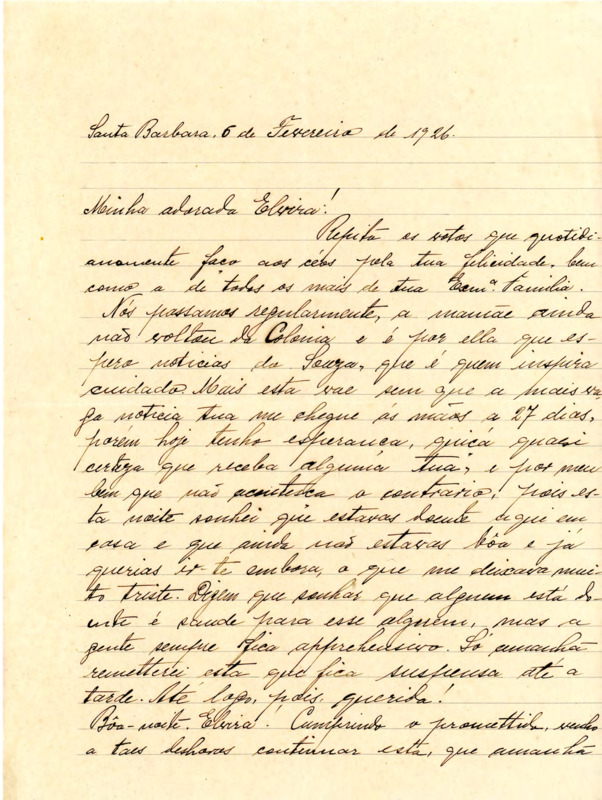 Santa Barbara, 6 de Fevereiro de 1926.
Minha adorada Elvira!
Repito os votos que quotidi-
anamente faço aos céos pela tua felicidade, bem
como a de todos os mais de tua Ecmª. Familia.
Nós passamos regularmente, a mamãe ainda
não voltou da Colonia e é por ella que es-
pero noticias do Souza, que é quem inspira
cuidado. Mais esta vae sem que a mais va-
ga noticia tua me chegue as mãos a 27 dias,
porem hoje tenho esperança, quiçá quasi
certeza que receba alguma tua, e por meu
bem que não aconteça o contrario, pois es-
ta noite sonhei que estavas doente aqui em
casa e que ainda não estavas bôa e já
querias ir te embora, o que me deixava mui-
to triste. Dizem que sonhar que alguem está do-
ente é saude para esse alguem, mas a
gente sempre fica apprehensivo. Só amanhã
remetterei esta que fica suspensa até a
tarde. Até logo, pois, querida!
Bôa-noite, Elvira. Cumprindo o promettido, venho
a taes deshoras continuar esta, que amanhã